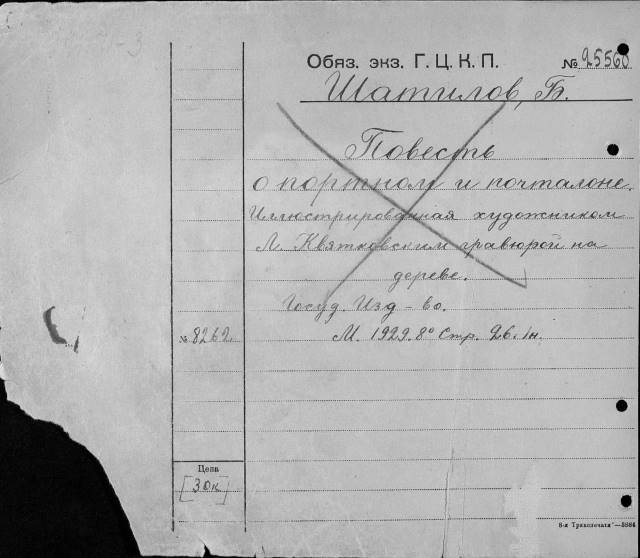 Обяз. экз. Г. Ц. К. П. № 25560
Шатилов, Б.
Повесть
о портном и почталоне.
Иллюстрированная художником
Л. Квятковским гравюрой на
дереве.
Госуд. Изд-во.
№ 8262. М. 1929. 8° Стр. 26. 1н.
Цена
[30к]
8-я Транспечати—5884